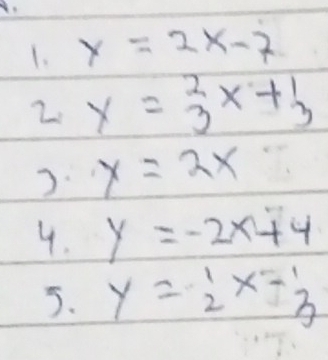 1. y = 2x-7
2. y = 2/3 x + 1/3
3. y = 2x
4. y = -2x+4
5. y = 1/2 x - 1/3